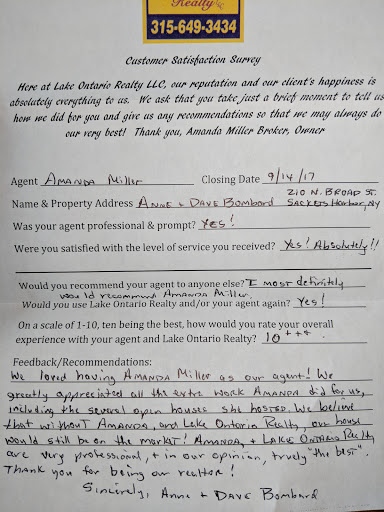 Realty
315-649-3434
Customer Satisfaction Survey
Here at Lake Ontario Realty LLC, our reputation and our client's happiness is
absolutely everything to us. We ask that you take just a brief moment to tell us
how we did for you and give us any recommendations so that we may always do
our very best! Thank you, Amanda Miller Broker, Owner
Agent Amanda Miller Closing Date 9/14/17
210 N. Broad St.
Name & Property Address Anne + Dave Bombard Sackets Harbor, NY
Was your agent professional & prompt? Yes!
Were you satisfied with the level of service you received? Yes! Absolutely!!
Would you recommend your agent to anyone else? I most definitely
would recommend Amanda Miller.
Would you use Lake Ontario Realty and/or your agent again? Yes!
On a scale of 1-10, ten being the best, how would you rate your overall
experience with your agent and Lake Ontario Realty? 10+++
Feedback/Recommendations:
We loved having Amanda Miller as our agent! We
greatly appreciated all the extra work Amanda did for us,
including the several open houses she hosted. We believe
that without Amanda, and Lake Ontario Realty, our house
would still be on the market! Amanda, + Lake Ontario Realty
are very professional, + in our opinion, truely "the best".
Thank you for being our realtor!
Sincerely, Anne + Dave Bombard